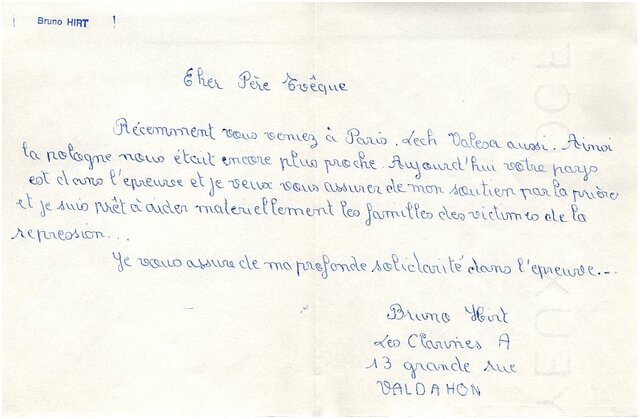 Bruno HIRT
Cher Père Evêque
Récemment vous veniez à Paris. Lech Valesa aussi. Ainsi
la pologne nous était encore plus proche. Aujourd'hui votre pays
est dans l'épreuve et je veux vous assurer de mon soutien par la prière
et je suis prêt à aider materiellement les familles des victimes de la
repression...
Je vous assure de ma profonde solidarité dans l'épreuve...
Bruno Hirt
Les Clarines A
13 grande rue
VALDAHON